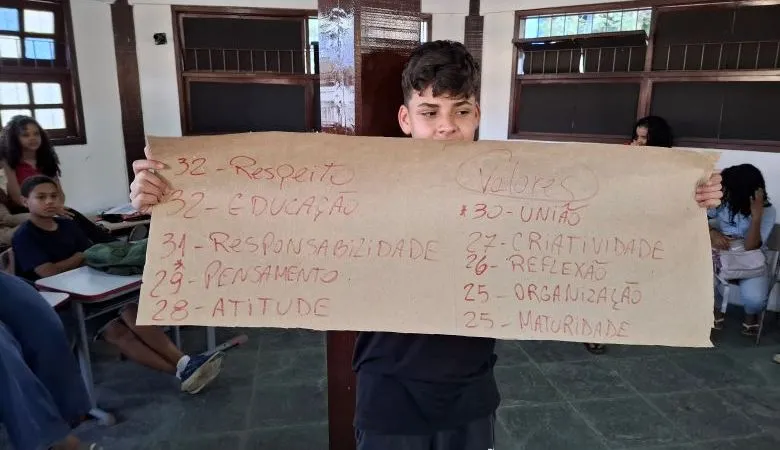 32 - Respeito
32 - EDUCAÇÃO
31 - RESPONSABILIDADE
*
29 - PENSAMENTO
28 - ATITUDE
Valores
*30 - UNIÃO
27 - CRIATIVIDADE
26 - REFLEXÃO
25 - ORGANIZAÇÃO
25 - MATURIDADE